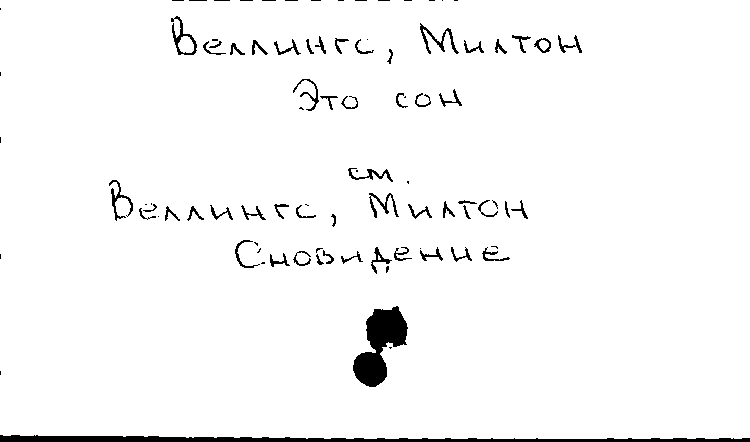 Веллингс, Милтон
Это сон
см.
Веллингс, Милтон
Сновидение